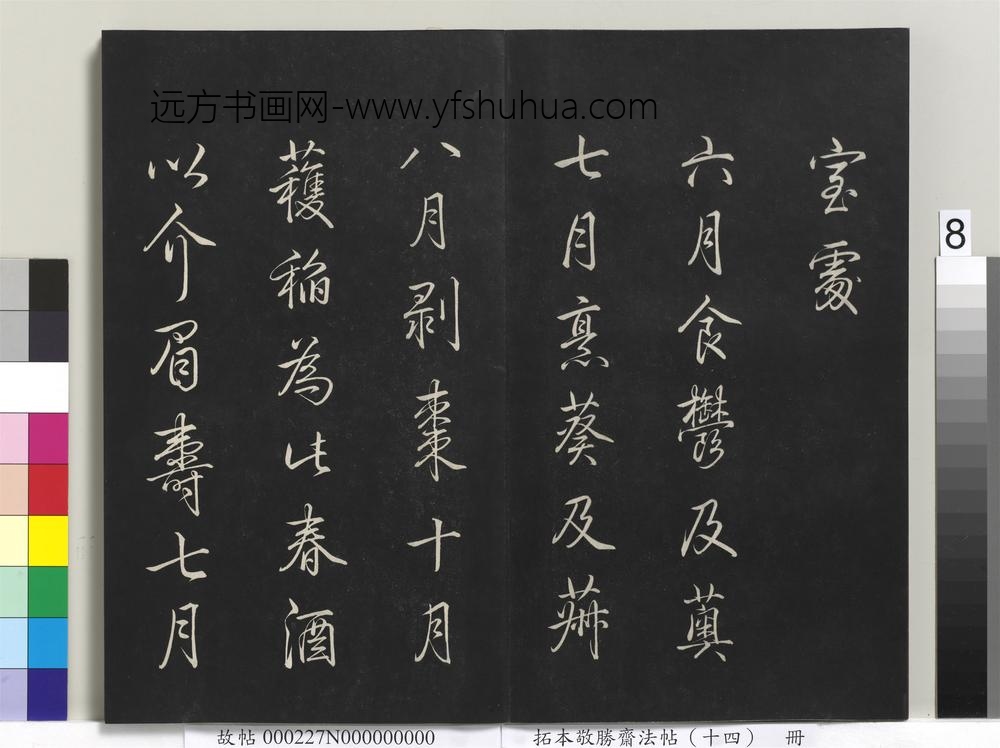 远方书画网-www.yfshuhua.com
室處
六月食鬱及薁
七月烹葵及菽
八月剝棗十月
穫稻為此春酒
以介眉壽七月
8
故帖 000227N000000000
拓本敬勝齋法帖（十四） 冊